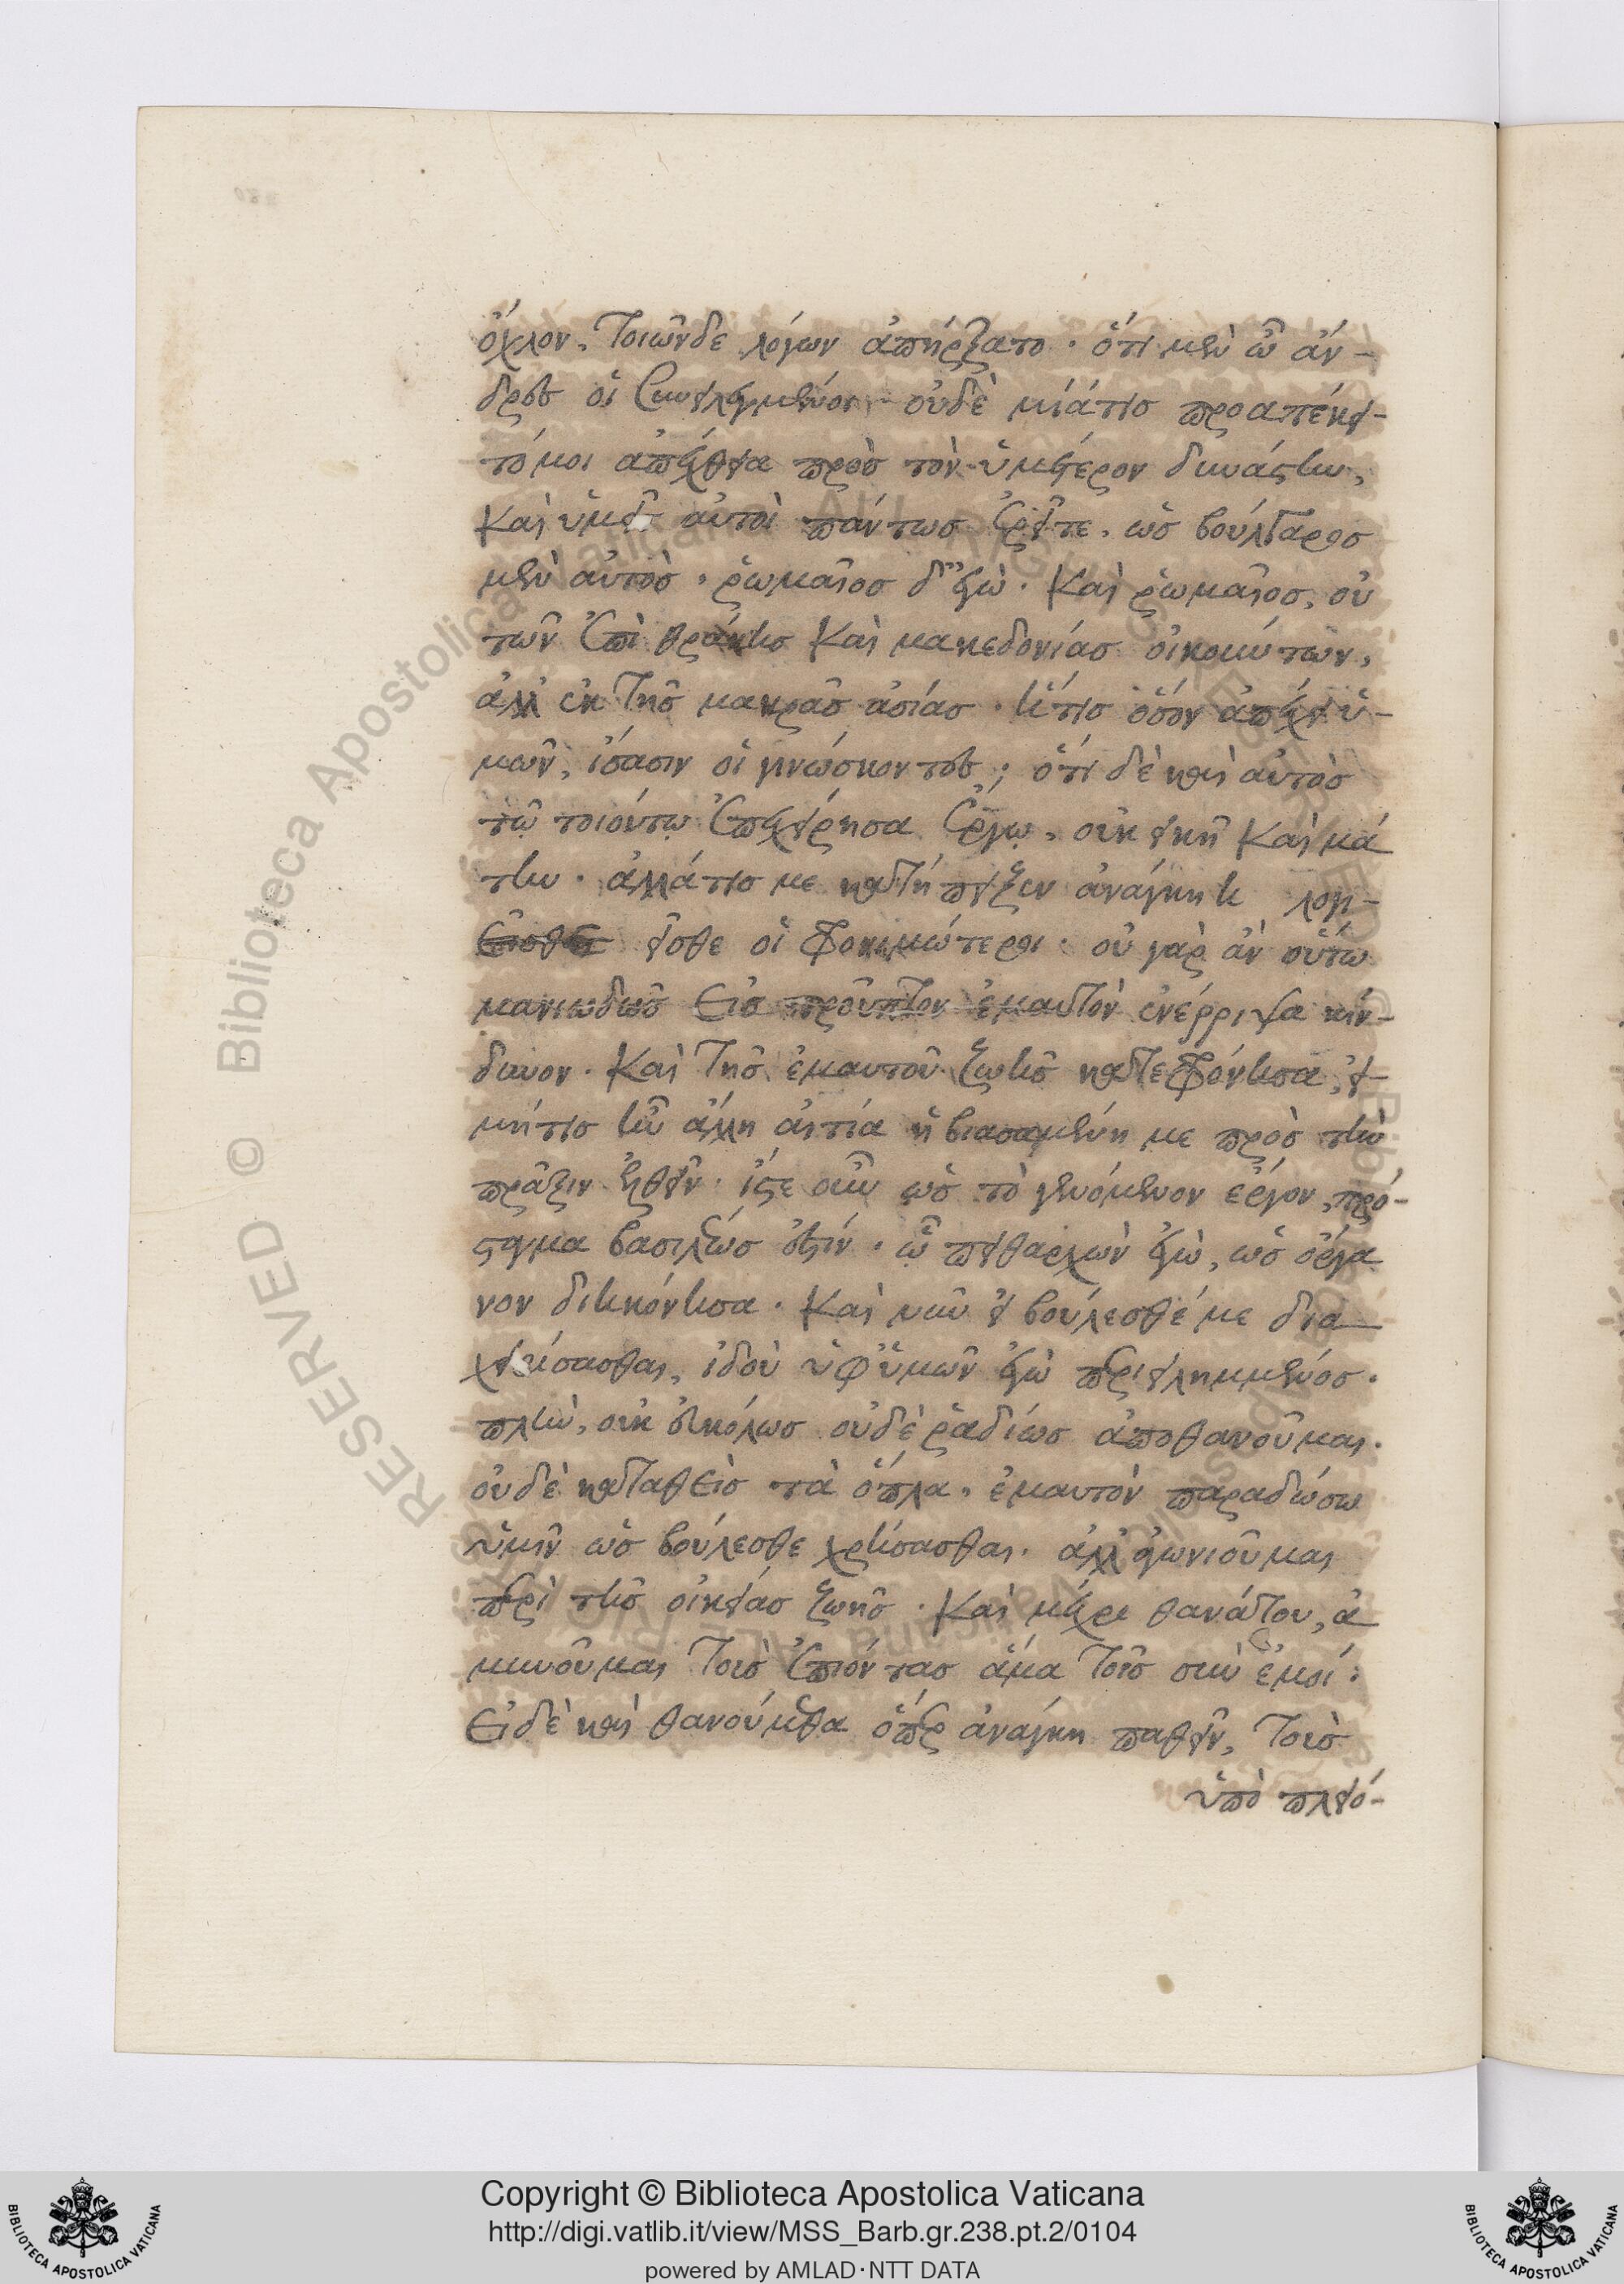 ὄχλον, τοιῶνδε λόγων ἀπήρξατο · ὅτι μὲν ὦ ἄν-
δρες οἱ συνειλεγμένοι οὐδὲ μιά τις προαπέκει-
τό μοι ἀπέχθεια πρὸς τὸν ὑμέτερον δυνάστην,
καὶ ὑμεῖς αὐτοὶ πάντως ἐρεῖτε, ὡς βούλγαρος
μὲν αὐτὸς · ῥωμαῖος δ' ἐγώ · καὶ ῥωμαῖος, οὐ
τῶν ἐπὶ θράκης καὶ μακεδονίας οἰκούντων,
ἀλλ' ἐκ τῆς μακρᾶς ἀσίας · ἥτις ὅσον ἀπέχει ὑ-
μῶν, ἴσασιν οἱ γινώσκοντες · ὅτι δὲ καὶ αὐτὸς
τῷ τοιούτῳ ἐπεχείρησα ἔργῳ, οὐκ εἰκῆ καὶ μά
την · ἀλλά τις με κατήπειξεν ἀνάγκη λογί-
εσθε οἱ φρονιμώτεροι · οὐ γὰρ ἂν οὕτω
μανιωδῶς εἰς προῦπτον ἐμαυτὸν ἐνέρριψα κίν-
δυνον · καὶ τῆς ἐμαυτοῦ ζωῆς κατεφρόνησα, εἰ
μή τις ἦν ἄλλη αἰτία ἡ βιασαμένη με πρὸς τὴν
πρᾶξιν ἐλθεῖν · ἴστε οὖν ὡς τὸ γενόμενον ἔργον, πρό-
σταγμα βασιλέως ἐστίν · ᾧ πειθαρχῶν ἐγώ, ὡς ὄργα
νον διηκόνησα · καὶ νῦν εἰ βούλεσθέ με δια
χειρίσασθαι, ἰδοὺ ὑφ' ὑμῶν ἐγὼ περιειλημμένος ·
πλὴν, οὐκ εὐκόλως οὐδὲ ῥαδίως ἀποθανοῦμαι ·
οὐδὲ καταθεὶς τὰ ὅπλα, ἐμαυτὸν παραδώσω
ὑμῖν ὡς βούλεσθε χρήσασθαι · ἀλλ' ἀγωνιοῦμαι
περὶ τῆς οἰκείας ζωῆς · καὶ μέχρι θανάτου, ἀ
μυνοῦμαι τοὺς ἐπιόντας ἅμα τοῖς σὺν ἐμοί ·
εἰ δὲ καὶ θανούμεθα ὅπερ ἀνάγκη παθεῖν, τοὺς
ὑπὸ πλειό-
RESERVED © Biblioteca Apostolica Vaticana ALL RIGHTS RESERVED © Biblioteca Apostolica Vaticana ALL RIG
Copyright © Biblioteca Apostolica Vaticana
http://digi.vatlib.it/view/MSS_Barb.gr.238.pt.2/0104
powered by AMLAD·NTT DATA
BIBLIOTECA APOSTOLICA VATICANA
BIBLIOTECA APOSTOLICA VATICANA